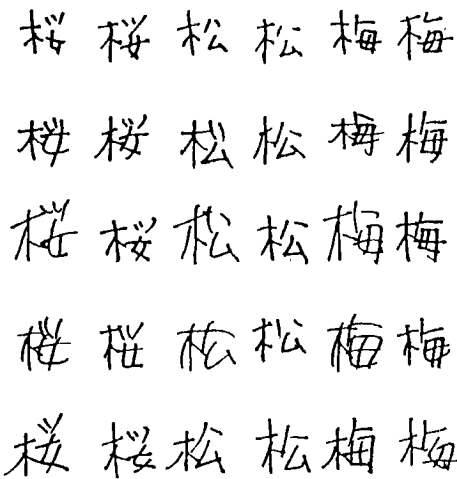 桜桜松松梅梅
桜桜松松梅梅
桜桜松松梅梅
桜桜松松梅梅
桜桜松松梅梅